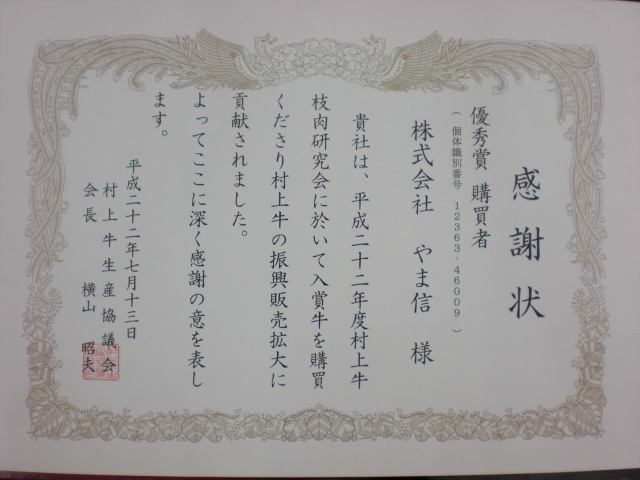 感謝状
優秀賞 購買者
（個体識別番号 12363-46009）
株式会社 やま信 様
貴社は、平成二十二年度村上牛
枝肉研究会に於いて入賞牛を購買
くださり村上牛の振興販売拡大に
貢献されました。
よってここに深く感謝の意を表し
ます。
平成二十二年七月十三日
村上牛生産協議会
会長 横山 昭夫